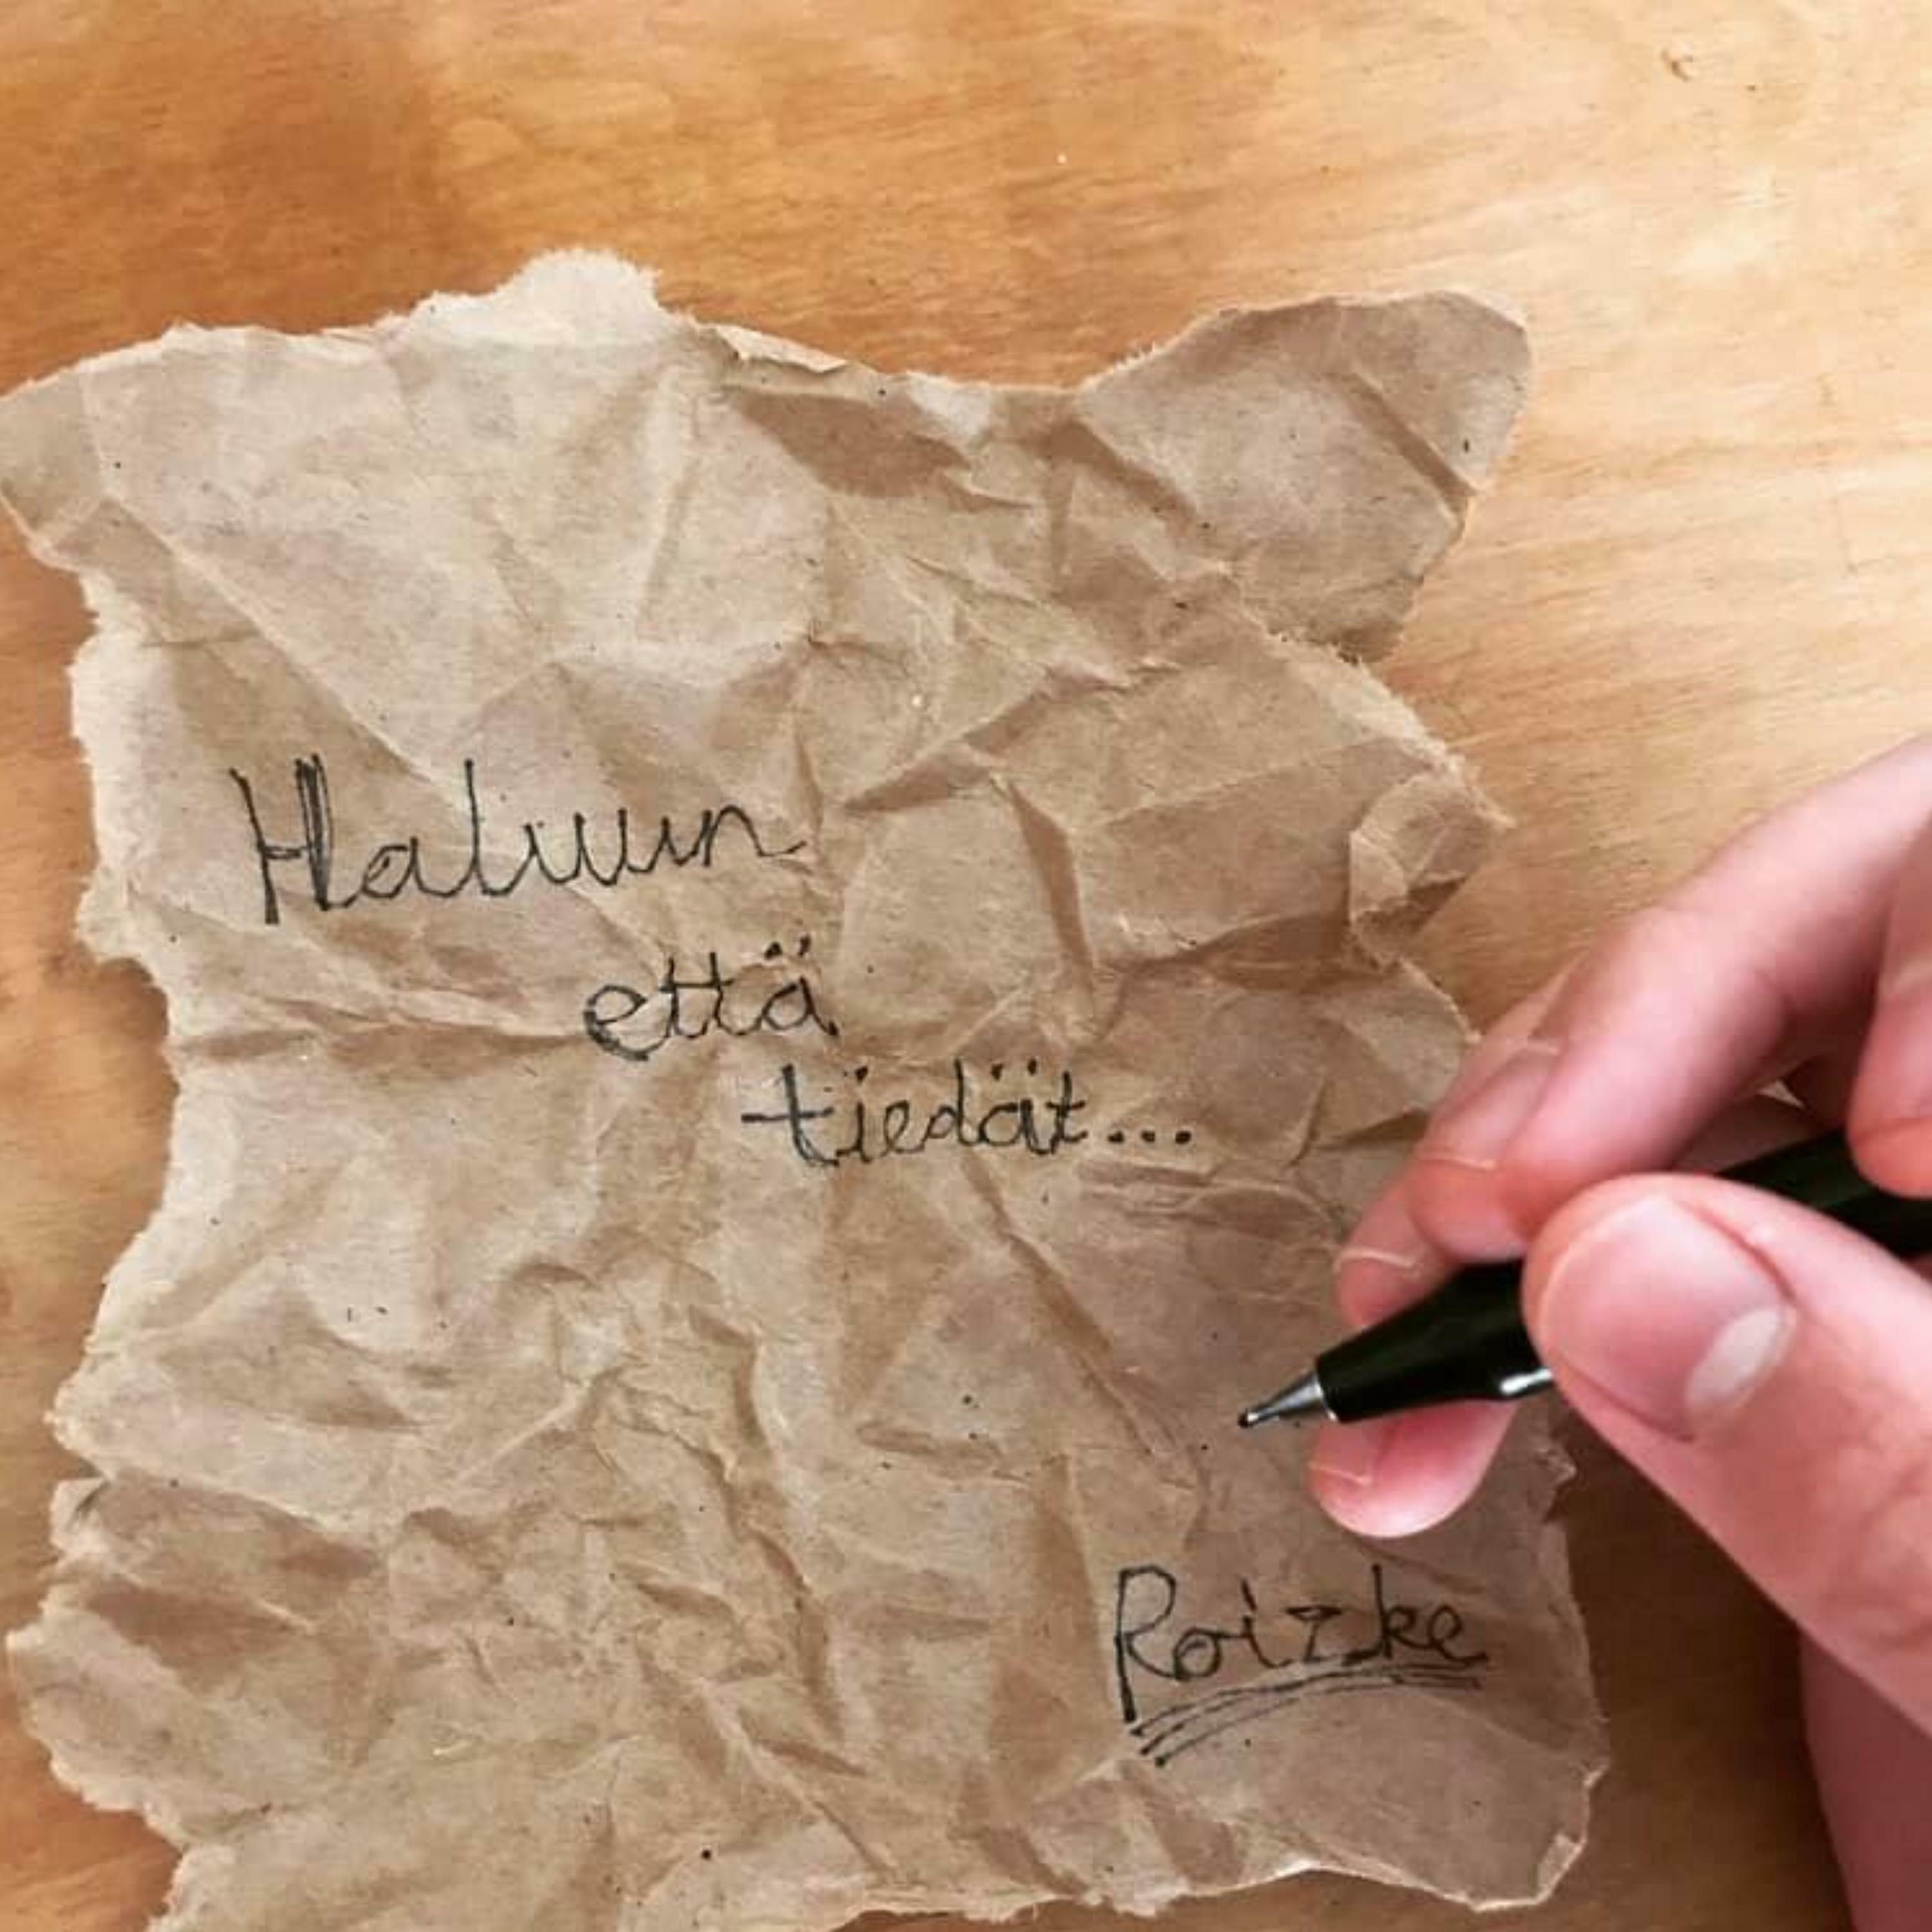 Haluun
että
tiedät...
Roizke